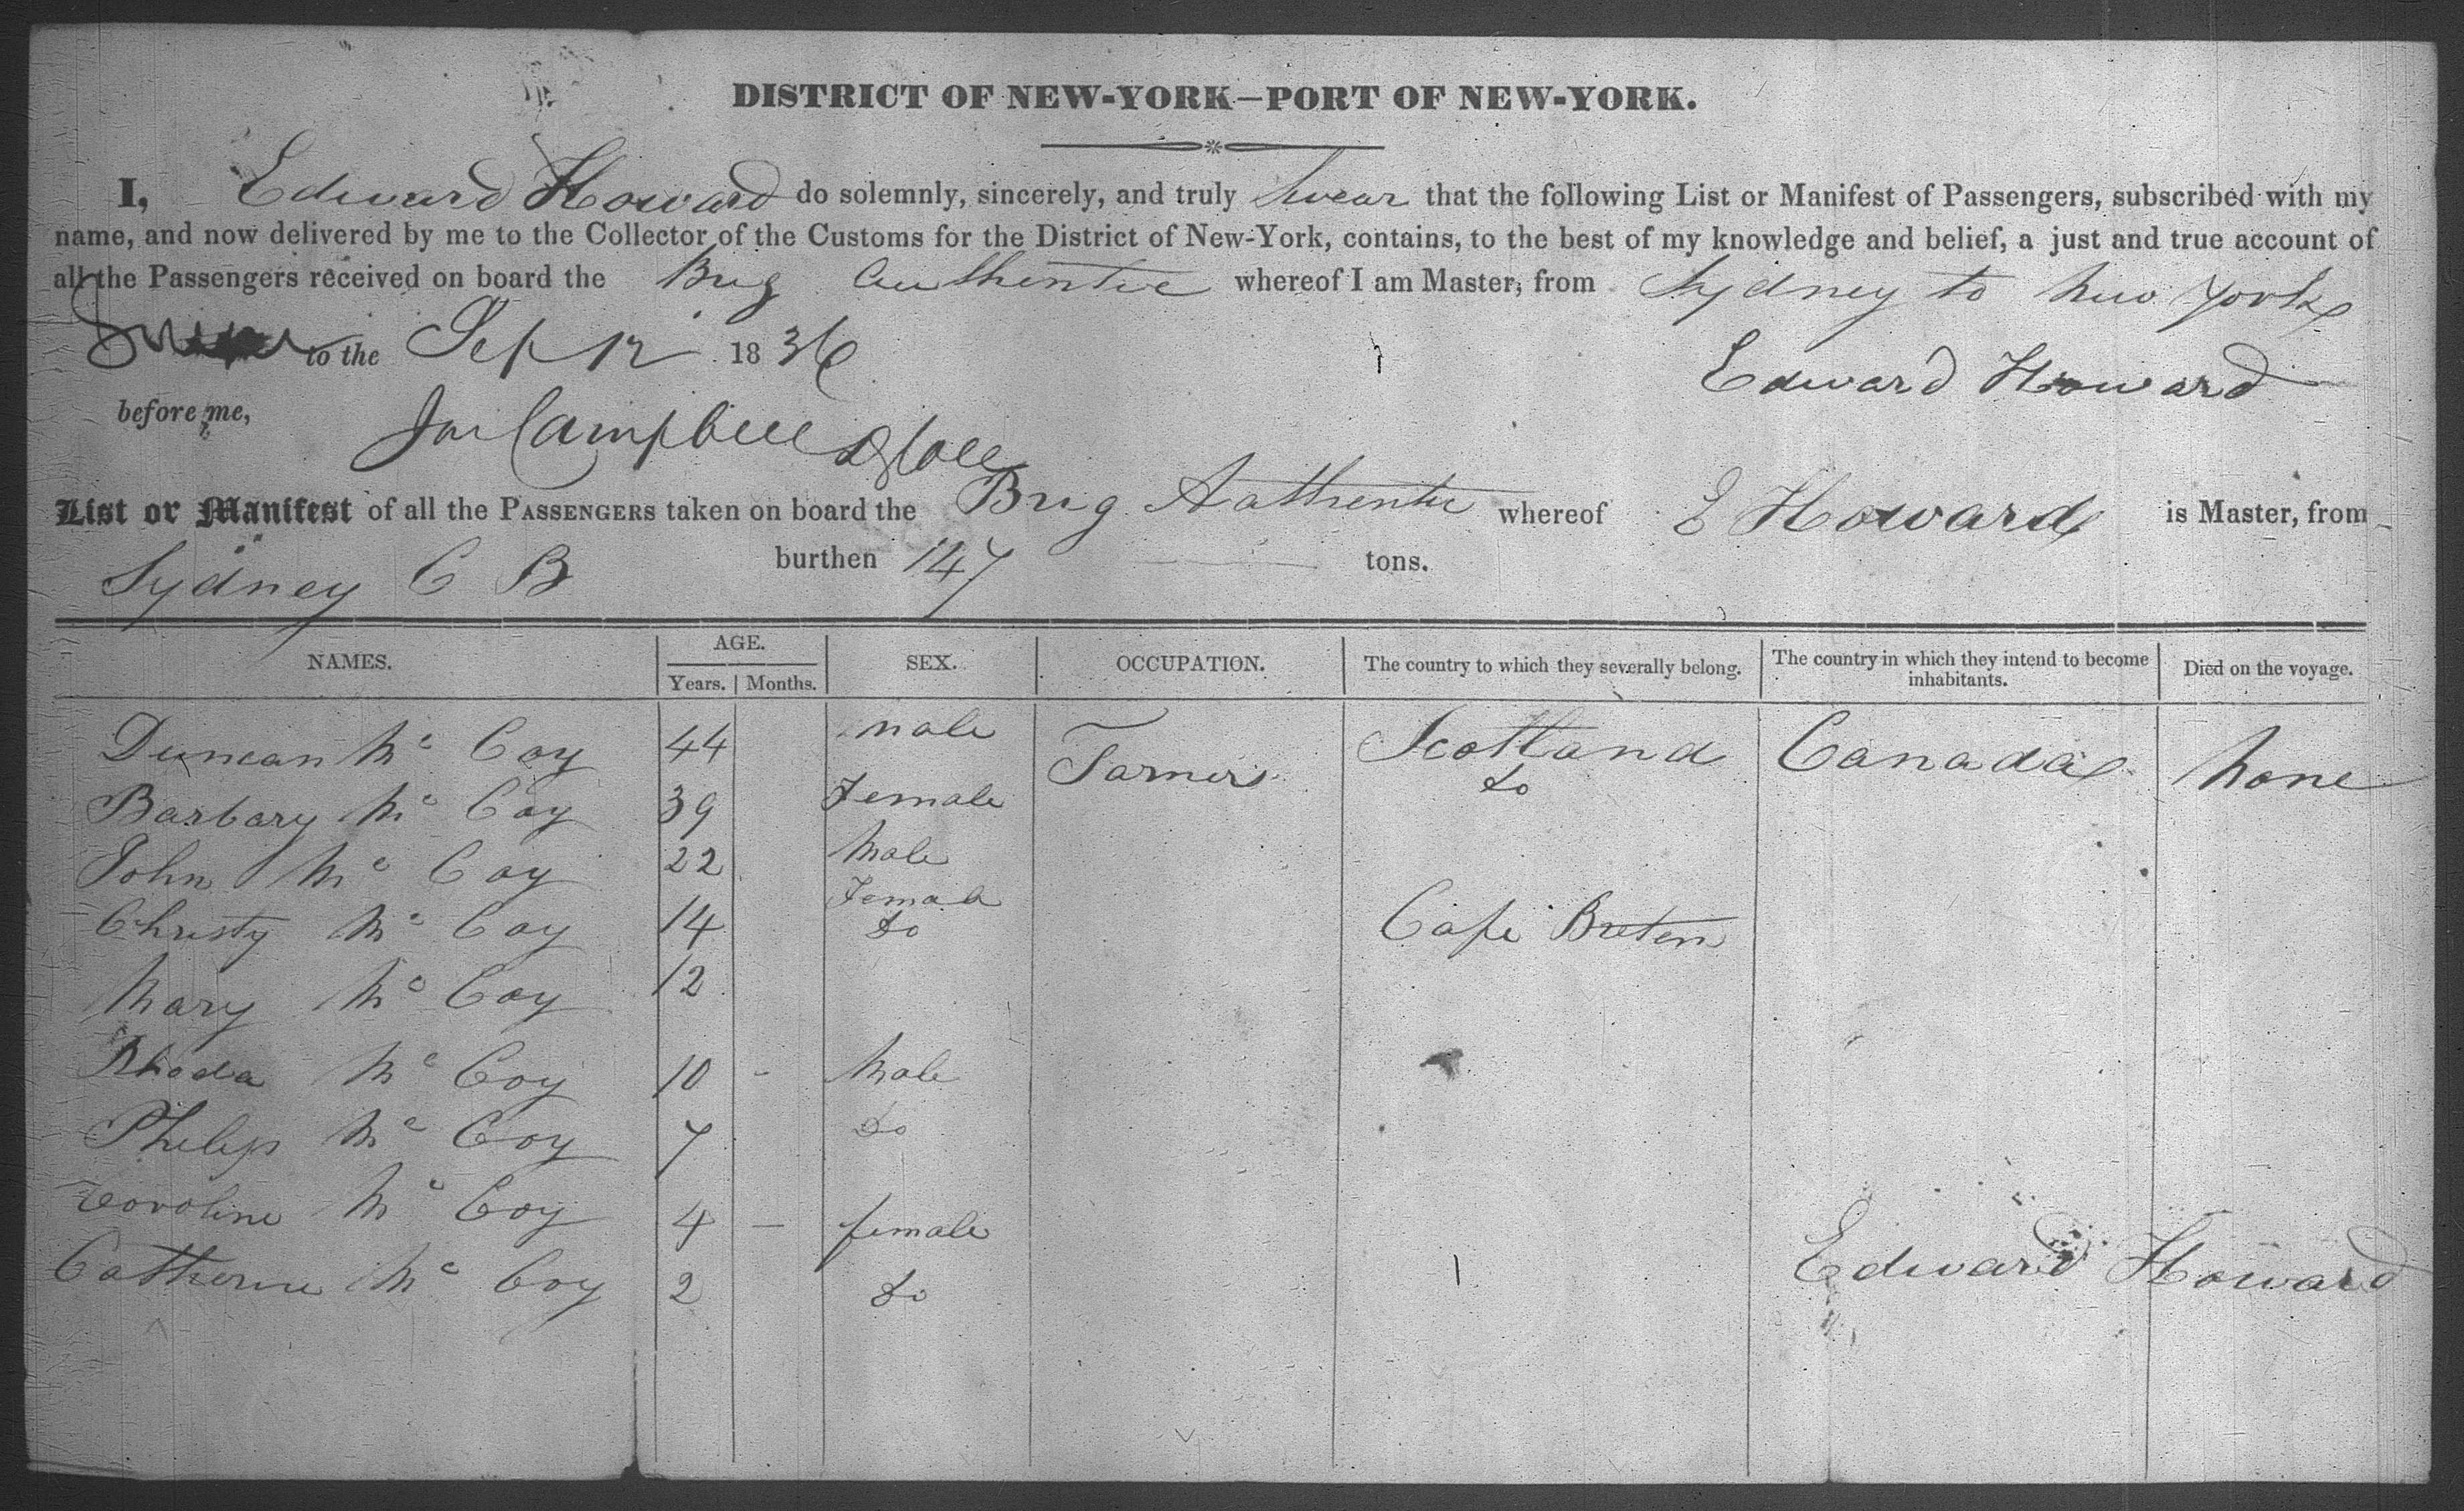 DISTRICT OF NEW-YORK—PORT OF NEW-YORK.
I, Edward Howard do solemnly, sincerely, and truly swear that the following List or Manifest of Passengers, subscribed with my
name, and now delivered by me to the Collector of the Customs for the District of New-York, contains, to the best of my knowledge and belief, a just and true account of
all the Passengers received on board the Brig Authentic whereof I am Master, from Sydney to New York
to the Sep 12 1836
Edward Howard
before me,
Campbell
List or Manifest of all the PASSENGERS taken on board the Brig Authentic whereof E Howard is Master, from
Sydney C B burthen 147 tons.
NAMES. AGE. Years. Months. SEX. OCCUPATION. The country to which they severally belong. The country in which they intend to become inhabitants. Died on the voyage.
Duncan Mc Coy 44 male Farmers Scotland Canada None
Barbary Mc Coy 39 Female do
John Mc Coy 22 Male
Christy Mc Coy 14 Female Cape Breton
do
Mary Mc Coy 12
Rhoda Mc Coy 10 - Male
Philip Mc Coy 7 do
Coroline Mc Coy 4 — female
Catherine Mc Coy 2 do
Edward Howard